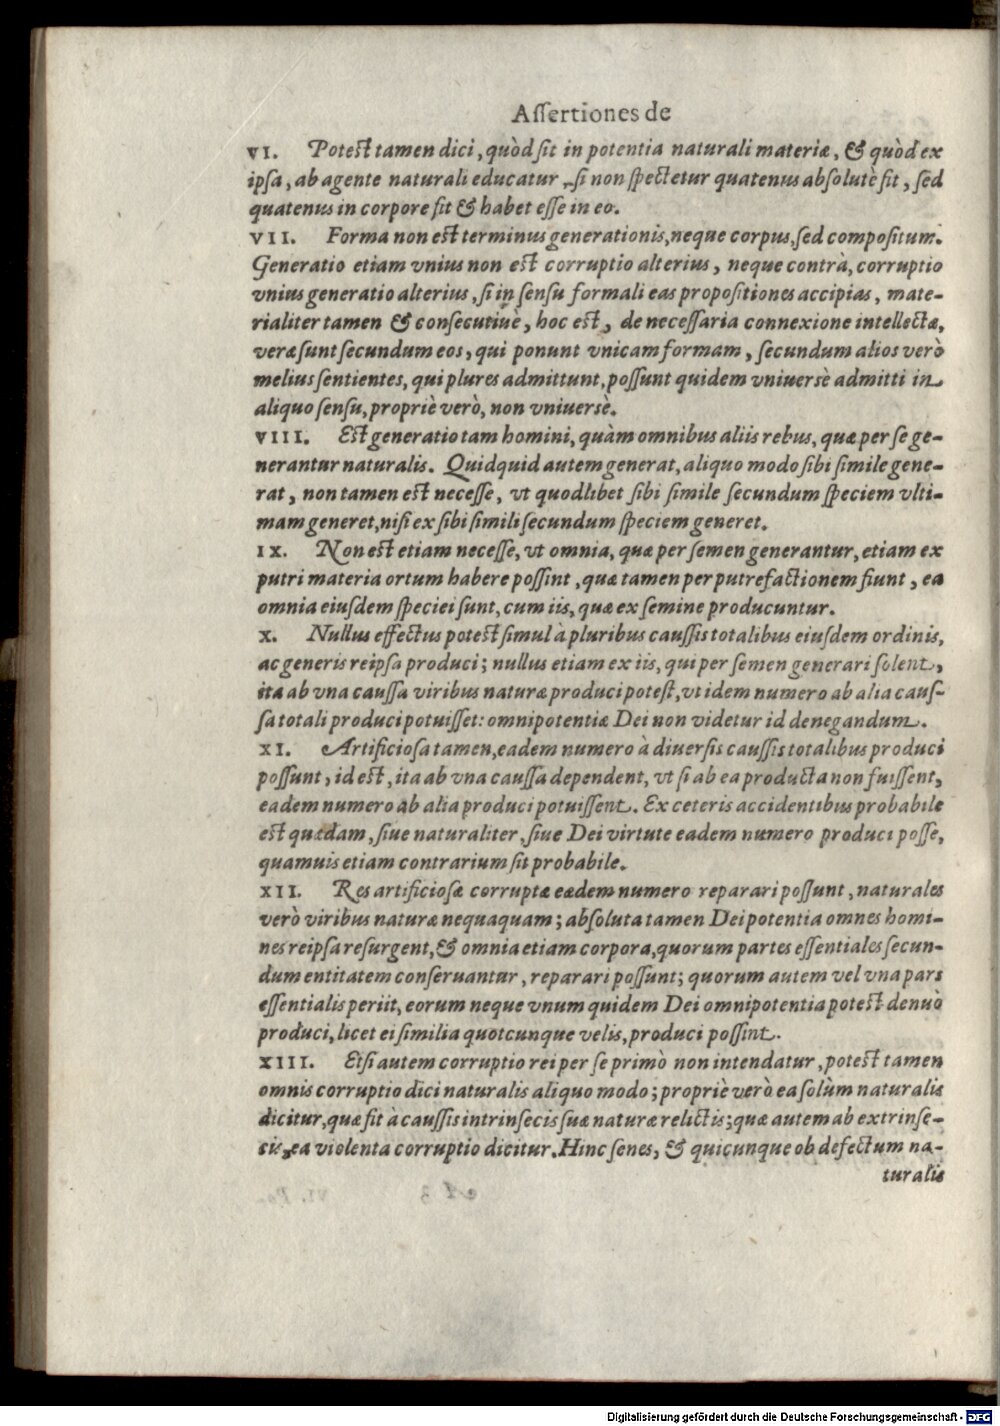 Aſſertiones de
VI. Poteſt tamen dici, quòd ſit in potentia naturali materiæ, & quòd ex
ipſa, ab agente naturali educatur, ſi non ſpectetur quatenus abſolutè fit, ſed
quatenus in corpore fit & habet eſſe in eo.
VII. Forma non eſt terminus generationis, neque corpus, ſed compoſitum.
Generatio etiam vnius non eſt corruptio alterius, neque contrà, corruptio
vnius generatio alterius, ſi in ſenſu formali eas propoſitiones accipias, mate-
rialiter tamen & conſecutiuè, hoc eſt, de neceſſaria connexione intellectæ,
veræ ſunt ſecundum eos, qui ponunt vnicam formam, ſecundum alios verò
melius ſentientes, qui plures admittunt, poſſunt quidem vniuersè admitti in
aliquo ſenſu, propriè verò, non vniuersè.
VIII. Eſt generatio tam homini, quàm omnibus aliis rebus, quæ per ſe ge-
nerantur naturalis. Quidquid autem generat, aliquo modo ſibi ſimile gene-
rat, non tamen eſt neceſſe, vt quodlibet ſibi ſimile ſecundum ſpeciem vlti-
mam generet, niſi ex ſibi ſimili ſecundum ſpeciem generet.
IX. Non eſt etiam neceſſe, vt omnia, quæ per ſemen generantur, etiam ex
putri materia ortum habere poſſint, quæ tamen per putrefactionem fiunt, ea
omnia eiuſdem ſpeciei ſunt, cum iis, quæ ex ſemine producuntur.
X. Nullus effectus poteſt ſimul à pluribus cauſſis totalibus eiuſdem ordinis,
ac generis reipſa produci; nullus etiam ex iis, qui per ſemen generari ſolent,
ita ab vna cauſſa viribus naturæ produci poteſt, vt idem numero ab alia cauſ-
ſa totali produci potuiſſet: omnipotentiæ Dei non videtur id denegandum.
XI. Artificioſa tamen, eadem numero à diuerſis cauſſis totalibus produci
poſſunt, id eſt, ita ab vna cauſſa dependent, vt ſi ab ea producta non fuiſſent,
eadem numero ab alia produci potuiſſent. Ex ceteris accidentibus probabile
eſt quædam, ſiue naturaliter, ſiue Dei virtute eadem numero produci poſſe,
quamuis etiam contrarium ſit probabile.
XII. Res artificioſæ corruptæ eædem numero reparari poſſunt, naturales
verò viribus naturæ nequaquam; abſoluta tamen Dei potentia omnes homi-
nes reipſa reſurgent, & omnia etiam corpora, quorum partes eſſentiales ſecun-
dum entitatem conſeruantur, reparari poſſunt; quorum autem vel vna pars
eſſentialis periit, eorum neque vnum quidem Dei omnipotentia poteſt denuò
produci, licet ei ſimilia quotcunque velis, produci poſſint.
XIII. Etſi autem corruptio rei per ſe primò non intendatur, poteſt tamen
omnis corruptio dici naturalis aliquo modo; propriè verò ea ſolùm naturalis
dicitur, quæ fit à cauſſis intrinſecis ſuæ naturæ relictis; quæ autem ab extrinſe-
cis, ea violenta corruptio dicitur. Hinc ſenes, & quicunque ob defectum na-
turalis
Digitalisierung gefördert durch die Deutsche Forschungsgemeinschaft - DFG